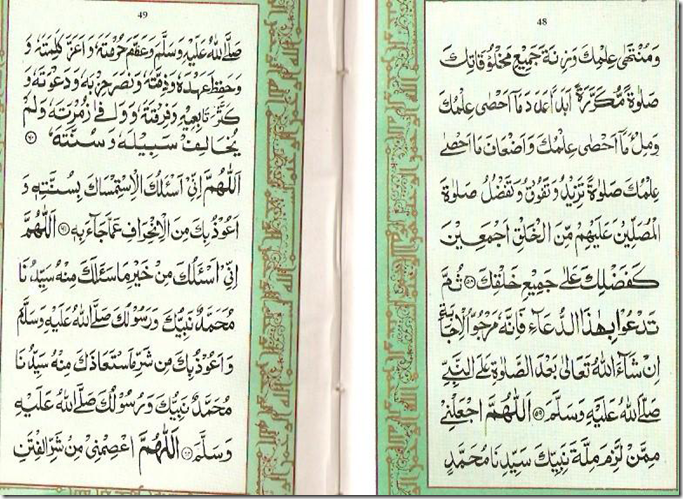 48
وَمُنْتَهٰى عِلْمِكَ وَزِنَةَ جَمِيْعِ مَخْلُوْقَاتِكَ
صَلٰوةً مُّكَرَّرَةً اَبَدًا عَدَدَ مَآ اَحْصٰى عِلْمُكَ
وَمِلْءَ مَآ اَحْصٰى عِلْمُكَ وَاَضْعَافَ مَا اَحْصٰى
عِلْمُكَ صَلٰوةً تَزِيْدُ وَتَفُوْقُ وَتَفْضُلُ صَلٰوةَ
الْمُصَلِّيْنَ عَلَيْهِمْ مِّنَ الْخَلْقِ اَجْمَعِيْنَ
كَفَضْلِكَ عَلٰى جَمِيْعِ خَلْقِكَ ۵۸ ثُمَّ
تَدْعُوْا بِهٰذَا الدُّعَآءِ فَاِنَّهٗ مَرْجُوُّ الْاِجَابَةِ
اِنْ شَآءَ اللهُ تَعَالٰى بَعْدَ الصَّلٰوةِ عَلَى النَّبِيِّ
صَلَّى اللهُ عَلَيْهِ وَسَلَّمَ ۵۹ اَللّٰهُمَّ اجْعَلْنِيْ
مِمَّنْ لَّزِمَ مِلَّةَ نَبِيِّكَ سَيِّدِنَا مُحَمَّدٍ
49
صَلَّى اللهُ عَلَيْهِ وَسَلَّمَ وَعَظَّمَ حُرْمَتَهٗ وَاَعَزَّ كَلِمَتَهٗ وَ
وَحَفِظَ عَهْدَهٗ وَذِمَّتَهٗ وَنَصَرَ حِزْبَهٗ وَدَعْوَتَهٗ وَ
كَثَّرَ تَابِعِيْهِ وَفِرْقَتَهٗ وَوَافٰى زُمْرَتَهٗ وَلَمْ
يُخَالِفْ سَبِيْلَهٗ وَسُنَّتَهٗ ۶۰
اَللّٰهُمَّ اِنِّيْ اَسْئَلُكَ الْاِسْتِمْسَاكَ بِسُنَّتِهٖ وَ
اَعُوْذُ بِكَ مِنَ الْاِنْحِرَافِ عَمَّا جَآءَ بِهٖ ۶۱ اَللّٰهُمَّ
اِنِّيْ اَسْئَلُكَ مِنْ خَيْرِ مَا سَئَلَكَ مِنْهُ سَيِّدُنَا
مُحَمَّدٌ نَبِيُّكَ وَرَسُوْلُكَ صَلَّى اللهُ عَلَيْهِ وَسَلَّمَ
وَاَعُوْذُ بِكَ مِنْ شَرِّ مَا اسْتَعَاذَكَ مِنْهُ سَيِّدُنَا
مُحَمَّدٌ نَبِيُّكَ وَرَسُوْلُكَ صَلَّى اللهُ عَلَيْهِ
وَسَلَّمَ ۶۲ اَللّٰهُمَّ اعْصِمْنِيْ مِنْ شَرِّ الْفِتَنِ